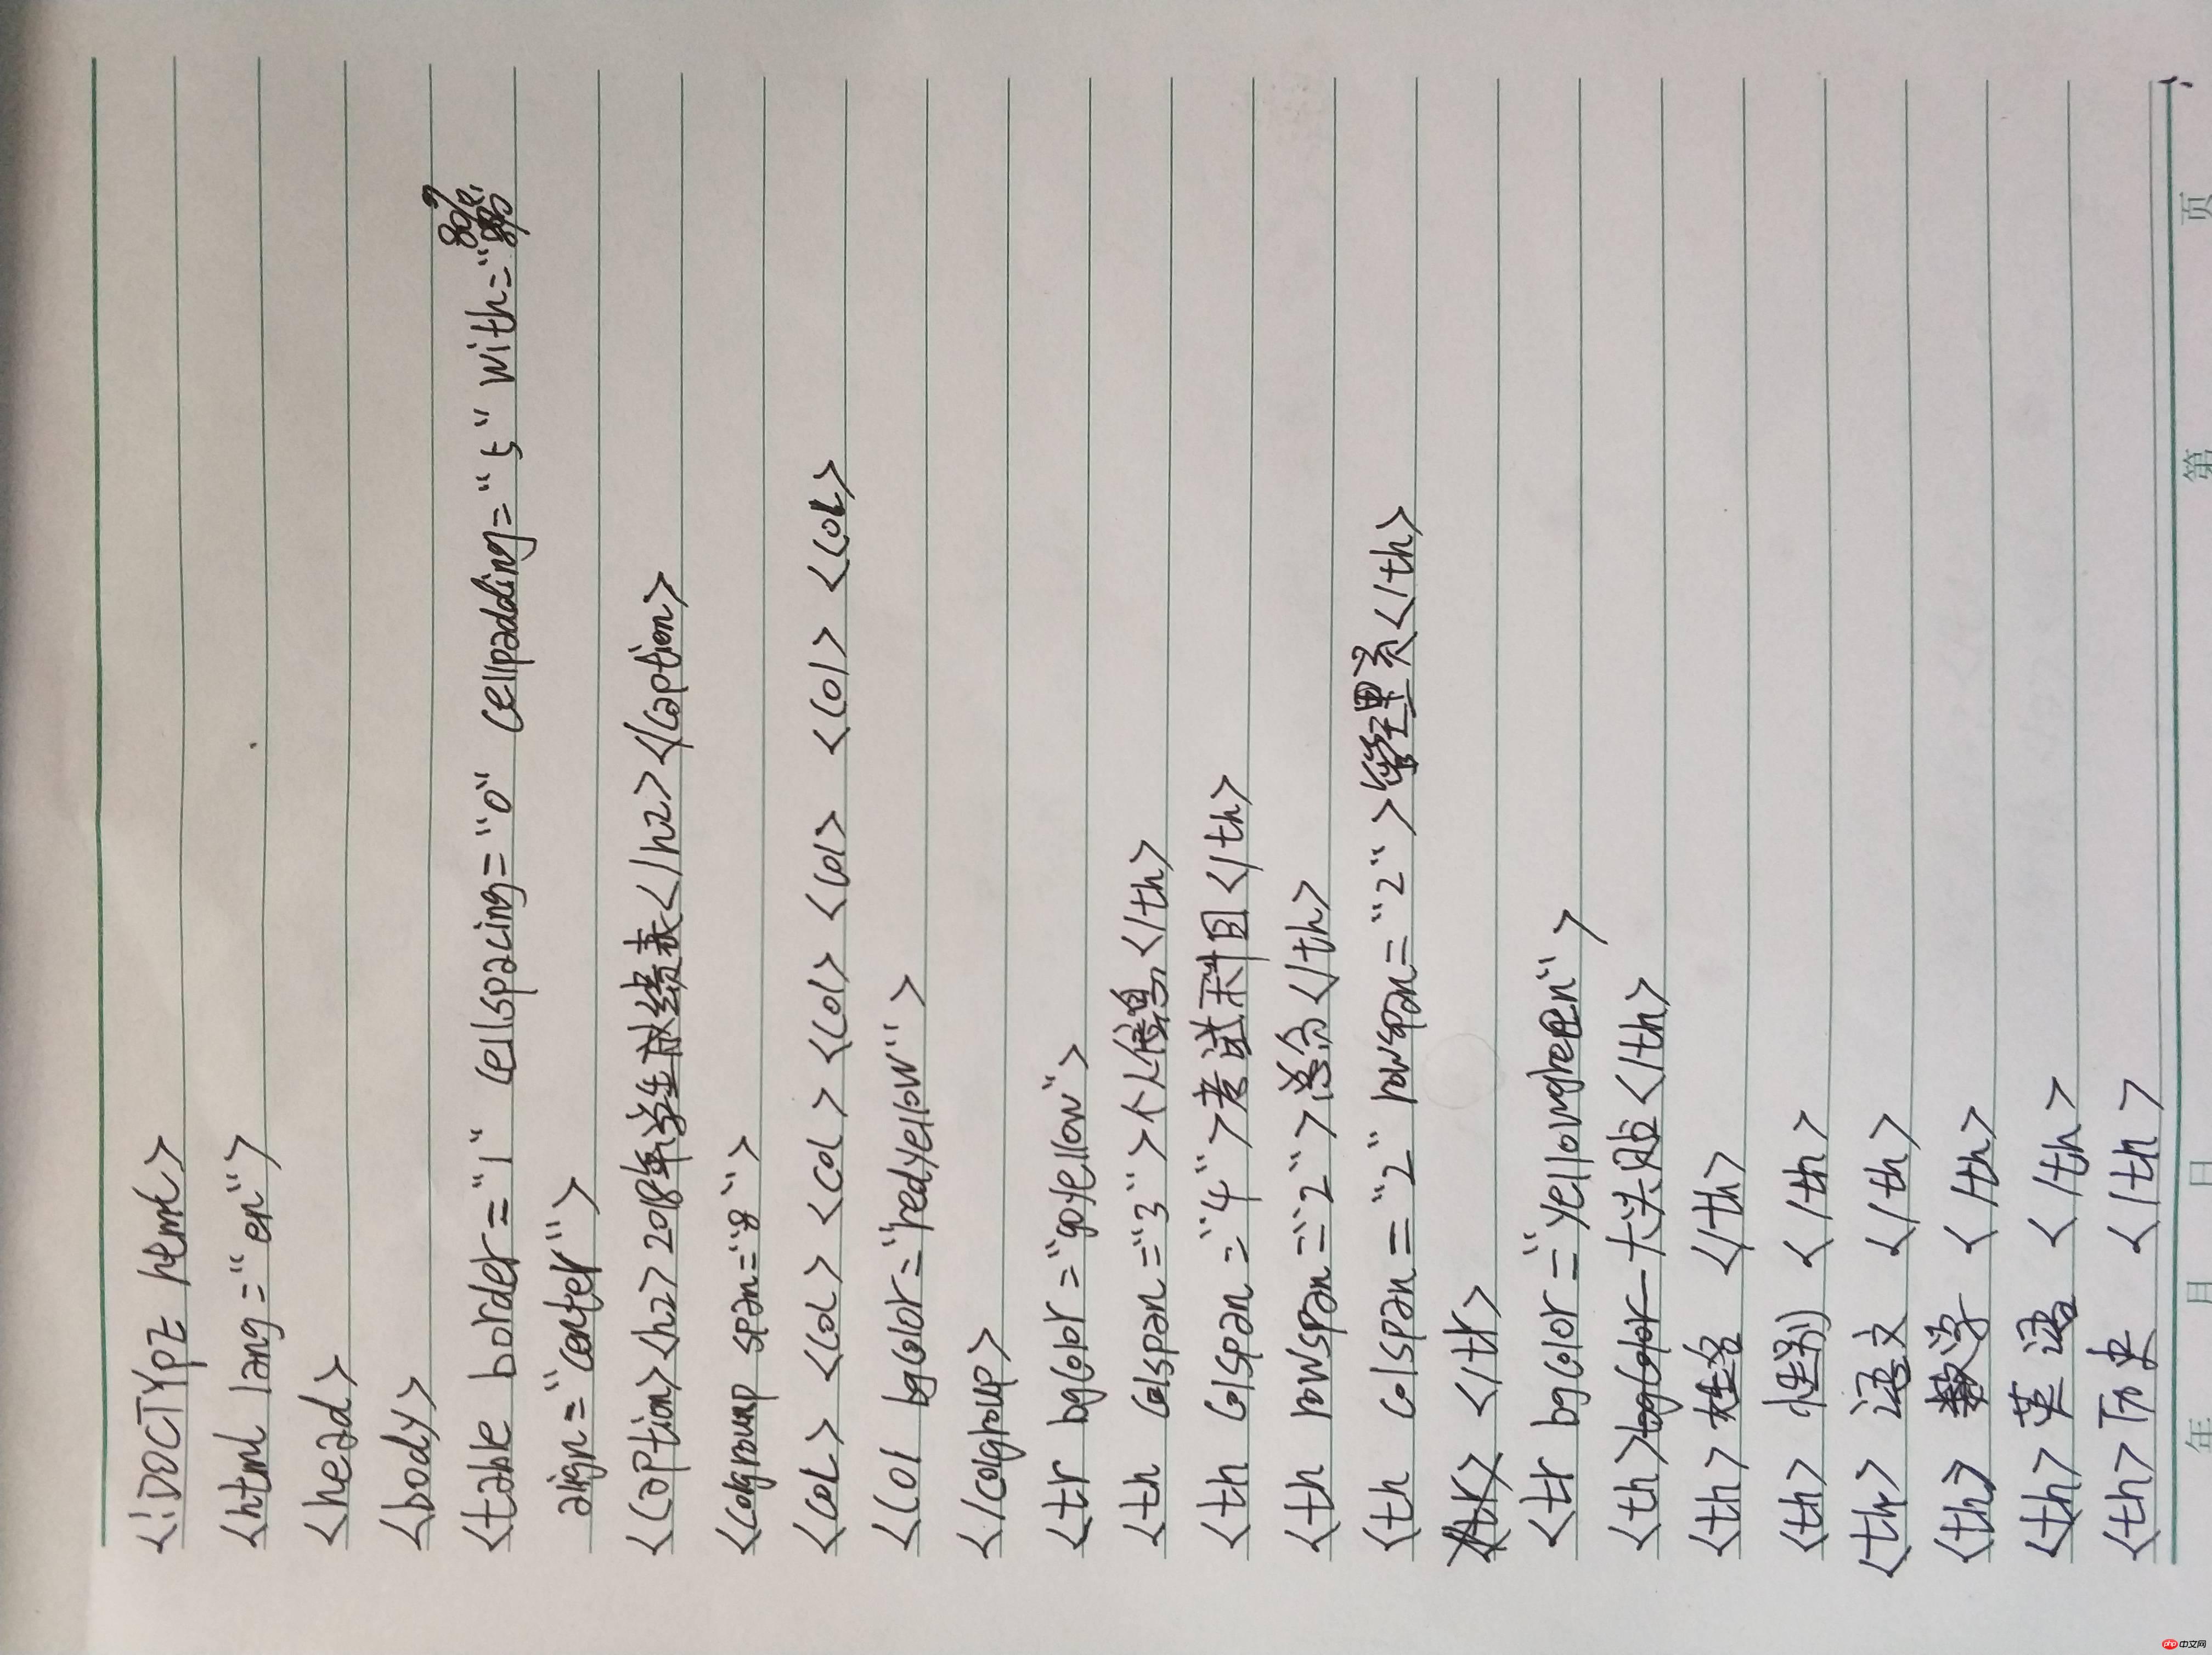 <!DOCTYPE html>
<html lang="en">
<head>
<body>
<table border="1" cellspacing="0" cellpadding="5" with="80%"
align="center">
<coption><h2>2018年学生成绩表</h2></coption>
<colgroup span="8">
<col> <col> <col> <col> <col> <col> <col>
<col bgcolor="redyellow">
</colgroup>
<tr bgcolor="goyellow">
<th colspan="3">个人信息</th>
<th colspan="4">考试科目</th>
<th rowspan="2">总分</th>
<th colspan="2" rowspan="2">管理员</th>
</tr>
<tr bgcolor="yellowghreen">
<th>大头贴</th>
<th>姓名 </th>
<th> 性别 </th>
<th> 语文 </th>
<th> 数学 </th>
<th> 英语 </th>
<th> 历史 </th>
年 月 日 第 页
php 中文网